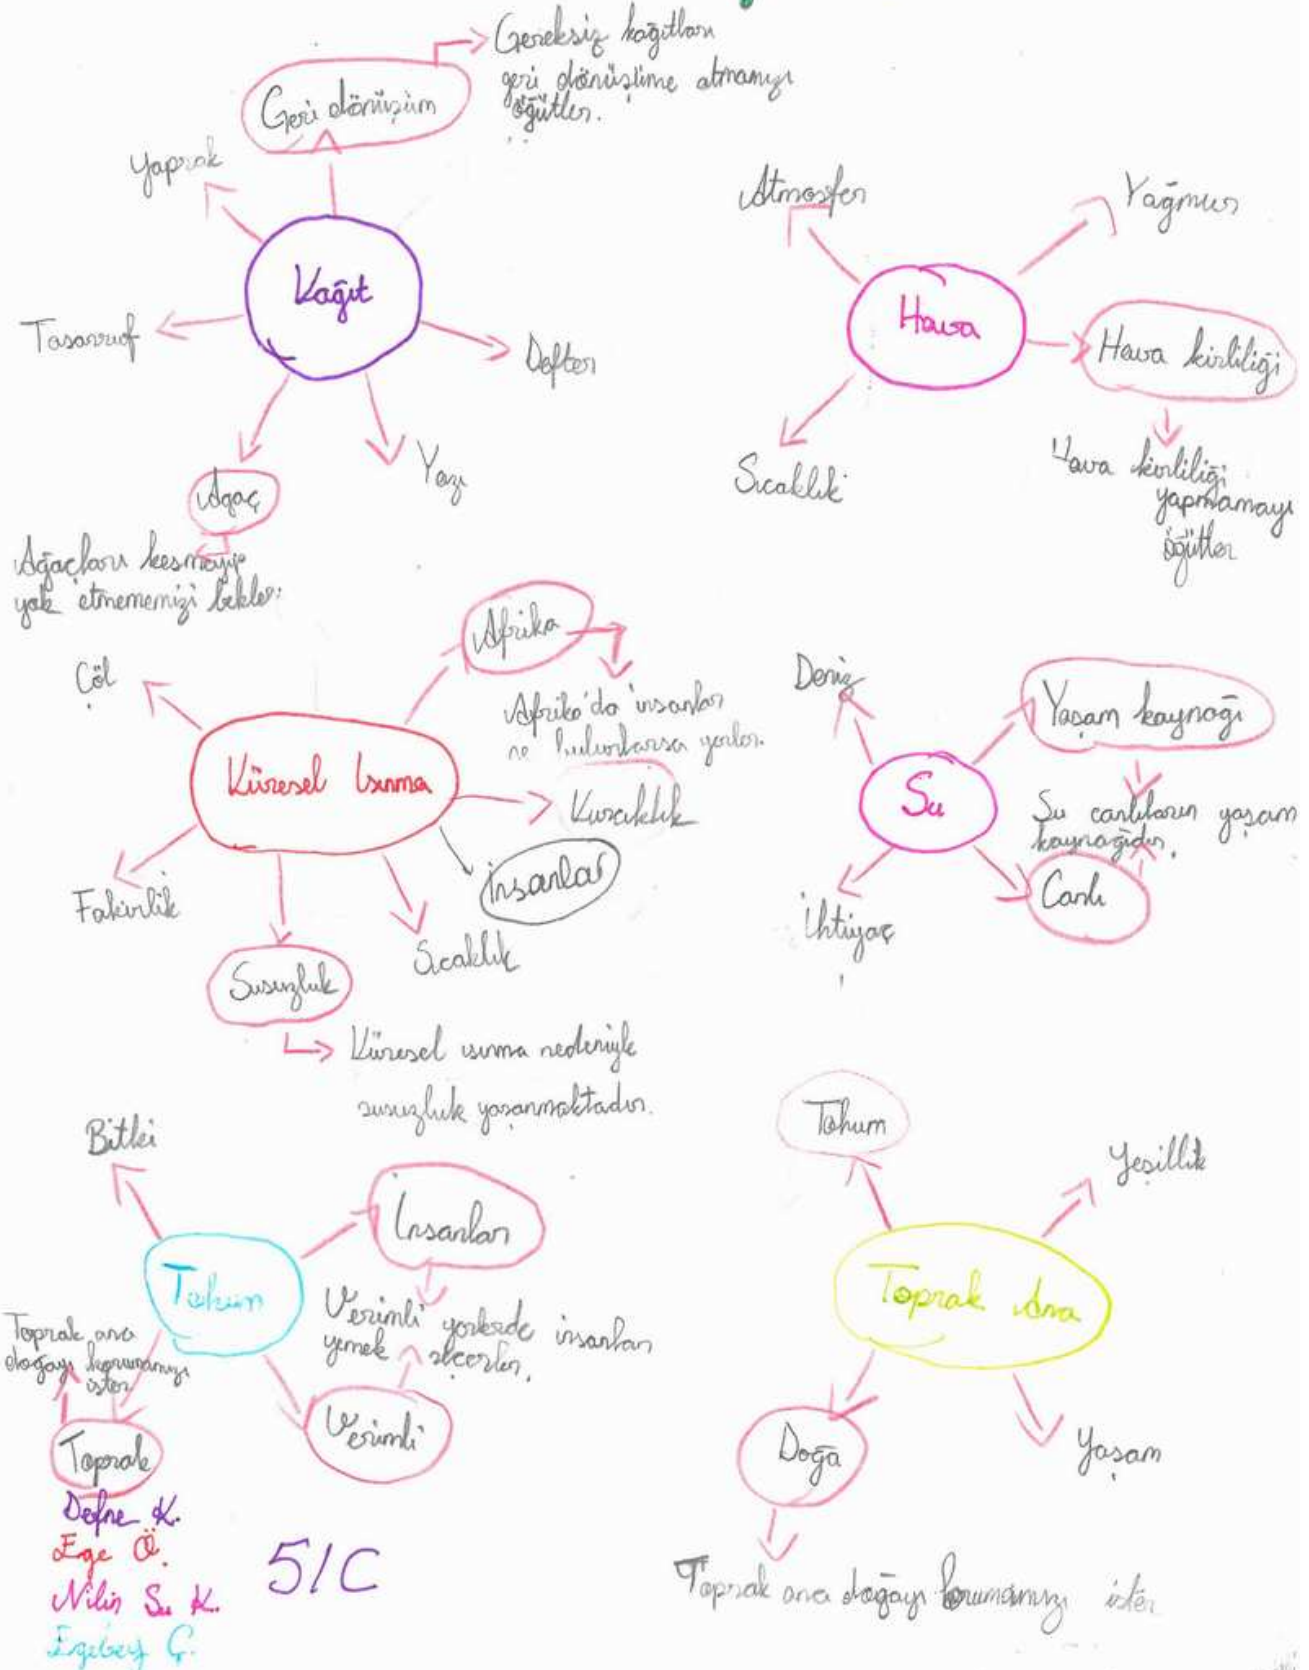 Gereksiz kağıtları
geri dönüşüme atmamızı
öğütler.
Geri dönüşüm
Yaprak
Kağıt
Tasarruf
Defter
Yazı
Ağaç
Ağaçları kesmeyip
yok etmememizi bekler.
Atmosfer
Yağmur
Hava
Hava kirliliği
Sıcaklık
Hava kirliliği
yapmamayı
öğütler
Afrika
Çöl
Afrika'da insanlar
ne bulurlarsa yerler.
Küresel Isınma
Kuraklık
İnsanlar
Fakirlik
Sıcaklık
Susuzluk
Küresel ısınma nedeniyle
susuzluk yaşanmaktadır.
Deniz
Yaşam kaynağı
Su
Su canlıların yaşam
kaynağıdır.
Canlı
İhtiyaç
Bitki
İnsanlar
Tohum
Verimli yerlerde insanlar
yemek
Toprak ana
doğayı korumamızı
ister
Verimli
Toprak
Tohum
Yeşillik
Toprak Ana
Doğa
Yaşam
Toprak ana doğayı korumamızı ister
Defne K.
Ege Ö.
Nilin Su K.
Egebey Ç.
5/C